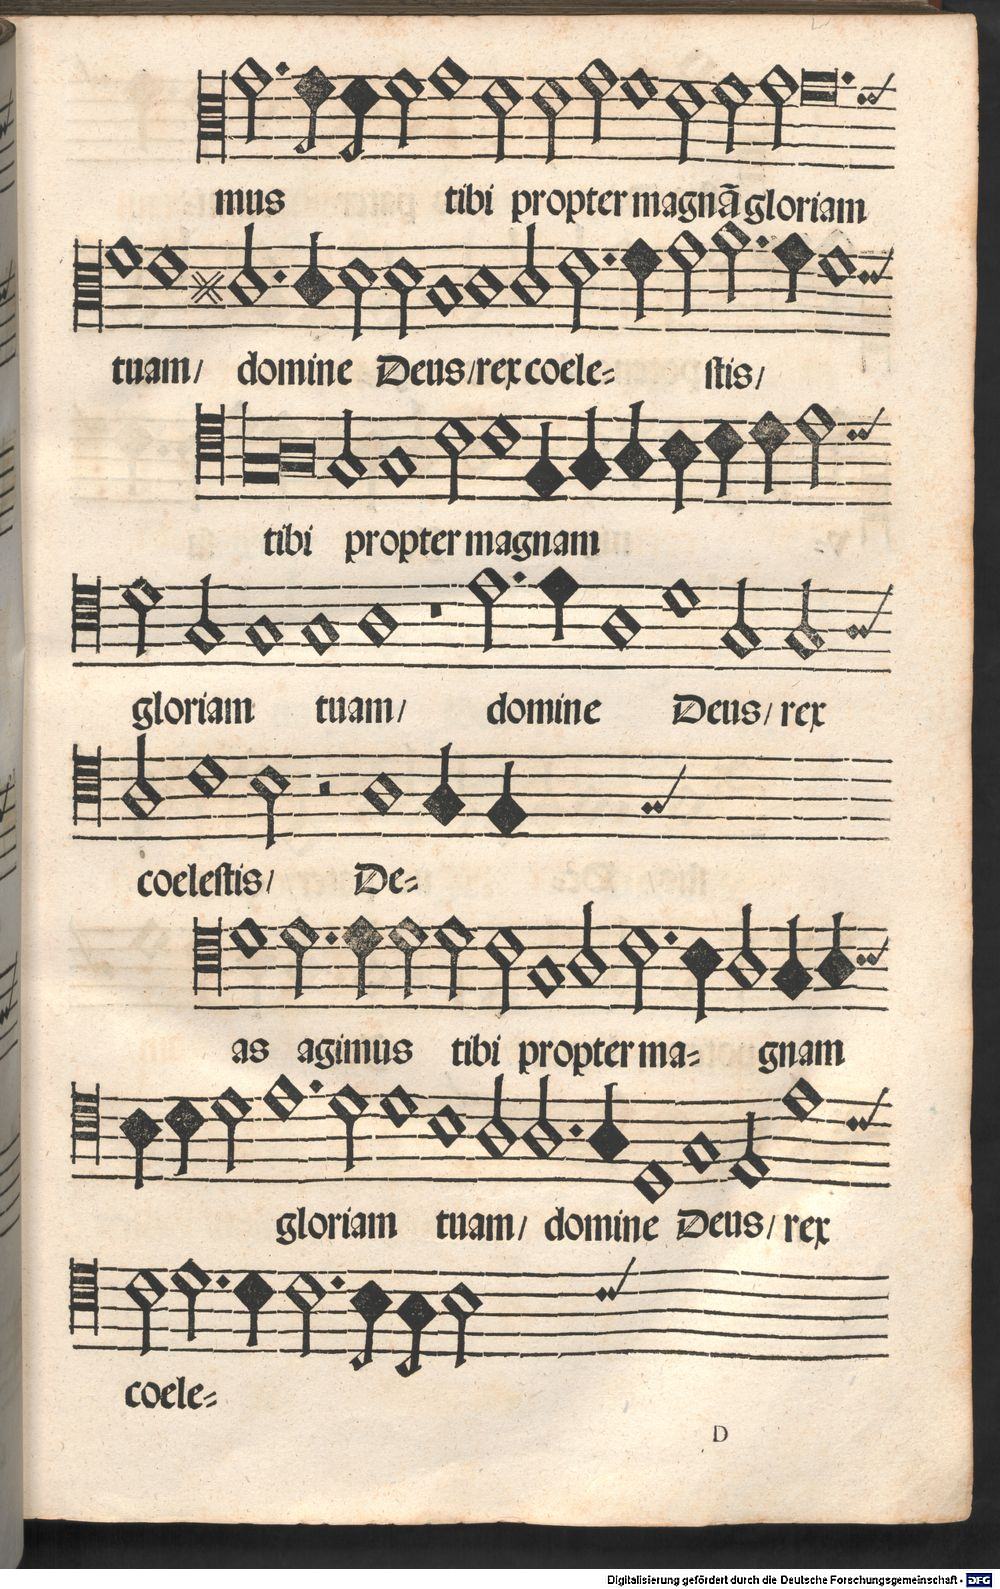 mus tibi propter magnā gloriam
tuam/ domine Deus/rex coele= stis/
tibi propter magnam
gloriam tuam/ domine Deus/ rex
coelestis/ De=
as agimus tibi propter ma= gnam
gloriam tuam/ domine Deus/ rex
coele=
D
Digitalisierung gefördert durch die Deutsche Forschungsgemeinschaft - DFG